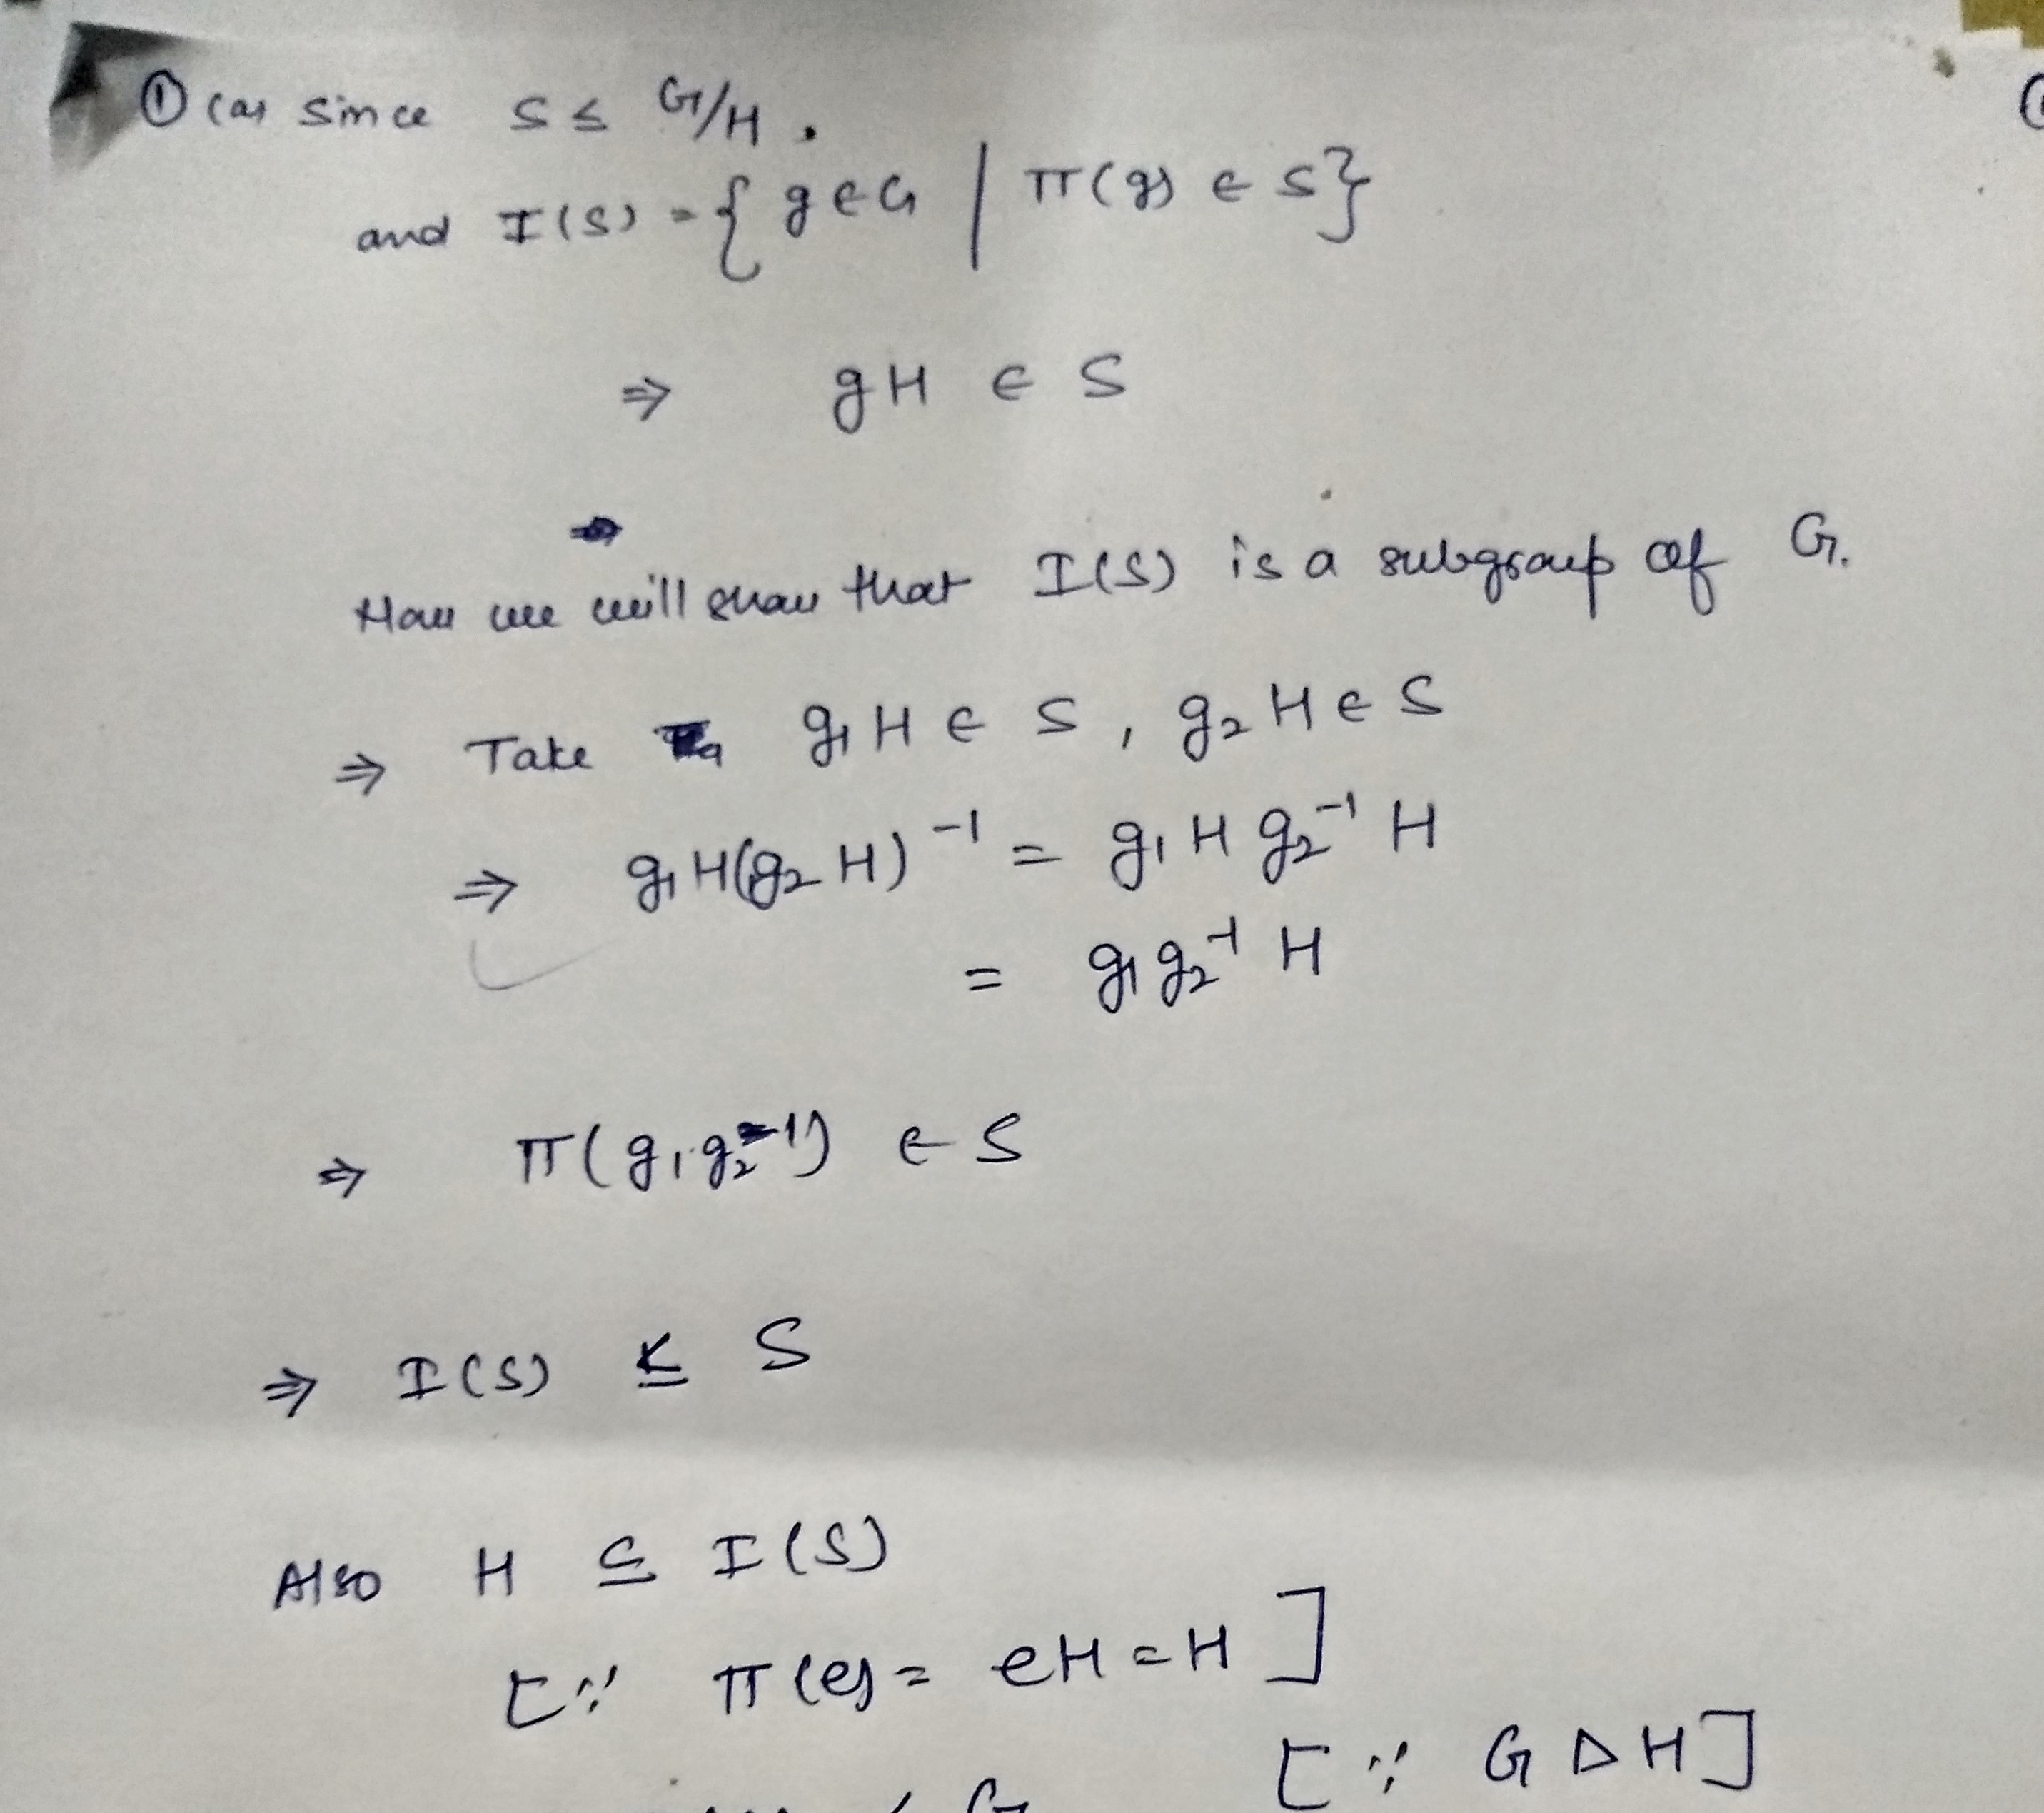 ① (a) Since S ≤ G/H .
and I(S) = { g ∈ G | π(g) ∈ S }
⇒ gH ∈ S
Now we will show that I(S) is a subgroup of G.
⇒ Take g₁H ∈ S , g₂H ∈ S
⇒ g₁H(g₂H)⁻¹ = g₁H g₂⁻¹ H
= g₁g₂⁻¹ H
⇒ π(g₁.g₂⁻¹) ∈ S
⇒ I(S) ≤ S
Also H ⊆ I(S)
[∵ π(e) = eH = H ]
[∵ G ⊳ H]